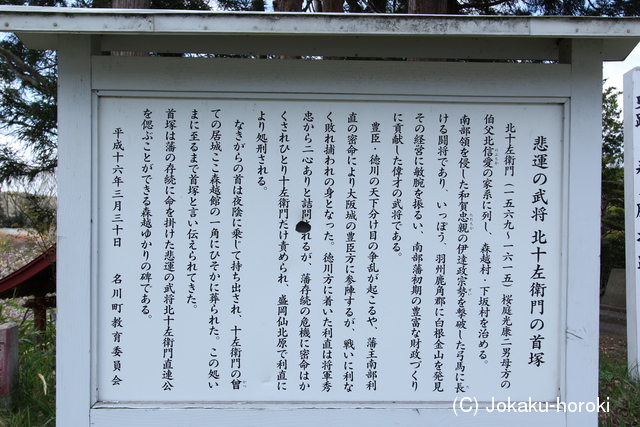 悲運の武将 北十左衛門の首塚
北十左衛門（一五六九〜一六一五）桜庭光康二男母方の
伯父北信愛の家系に列し、森越村・下坂村を治める。
南部領を侵した和賀忠親の伊達政宗勢を撃破した弓馬に長
ける闘将であり、いっぽう、羽州鹿角郡に白根金山を発見
その経営に敏腕を振るい、南部藩初期の豊富な財政づくり
に貢献した偉才の武将である。
豊臣・徳川の天下分け目の争乱が起こるや、藩主南部利
直の密命により大阪城の豊臣方に参陣するが、戦いに利な
く敗れ捕われの身となった。徳川方に着いた利直は将軍秀
忠から二心ありと詰問されるが、藩存続の危機に密命はか
くされひとり十左衛門だけ責められ、盛岡仙北原で利直に
より処刑される。
なきがらの首は夜陰に乗じて持ち出され、十左衛門の曾
ての居城、ここ森越館の一角にひそかに葬られた。この処い
まに至るまで首塚と言い伝えられてきた。
首塚は藩の存続に命を掛けた悲運の武将北十左衛門直達公
を偲ぶことができる森越ゆかりの碑である。
平成十六年三月三十日 名川町教育委員会
(C) Jokaku-horoki